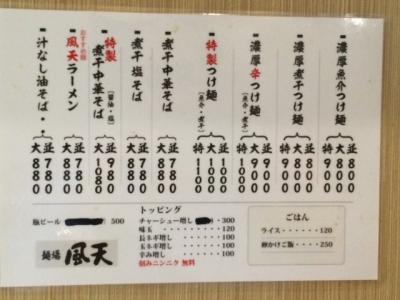 濃厚魚介つけ麺
並 8
大
特 1
濃厚煮干つけ麺
並 800
大 900
特 1000
濃厚辛つけ麺
（魚介・煮干）
並 900
大 1000
特 1100
特製つけ麺
（魚介・煮干）
並 1000
大 1100
特 1100
煮干中華そば
並 780
大 880
煮干塩そば
並 780
大 880
特製煮干中華そば
（醤油・塩）
並 980
大 1080
おすすめ
風天ラーメン
並 780
大 880
汁なし油そば・・
並 780
大 880
瓶ビール 500
麺場 風天
トッピング
チャーシュー増し・300
味玉・・・・・120
長ネギ増し・・・100
玉ネギ増し・・・100
辛み増し・・・・100
刻みニンニク 無料
ごはん
ライス・・・・・・120
卵かけご飯・・・・250